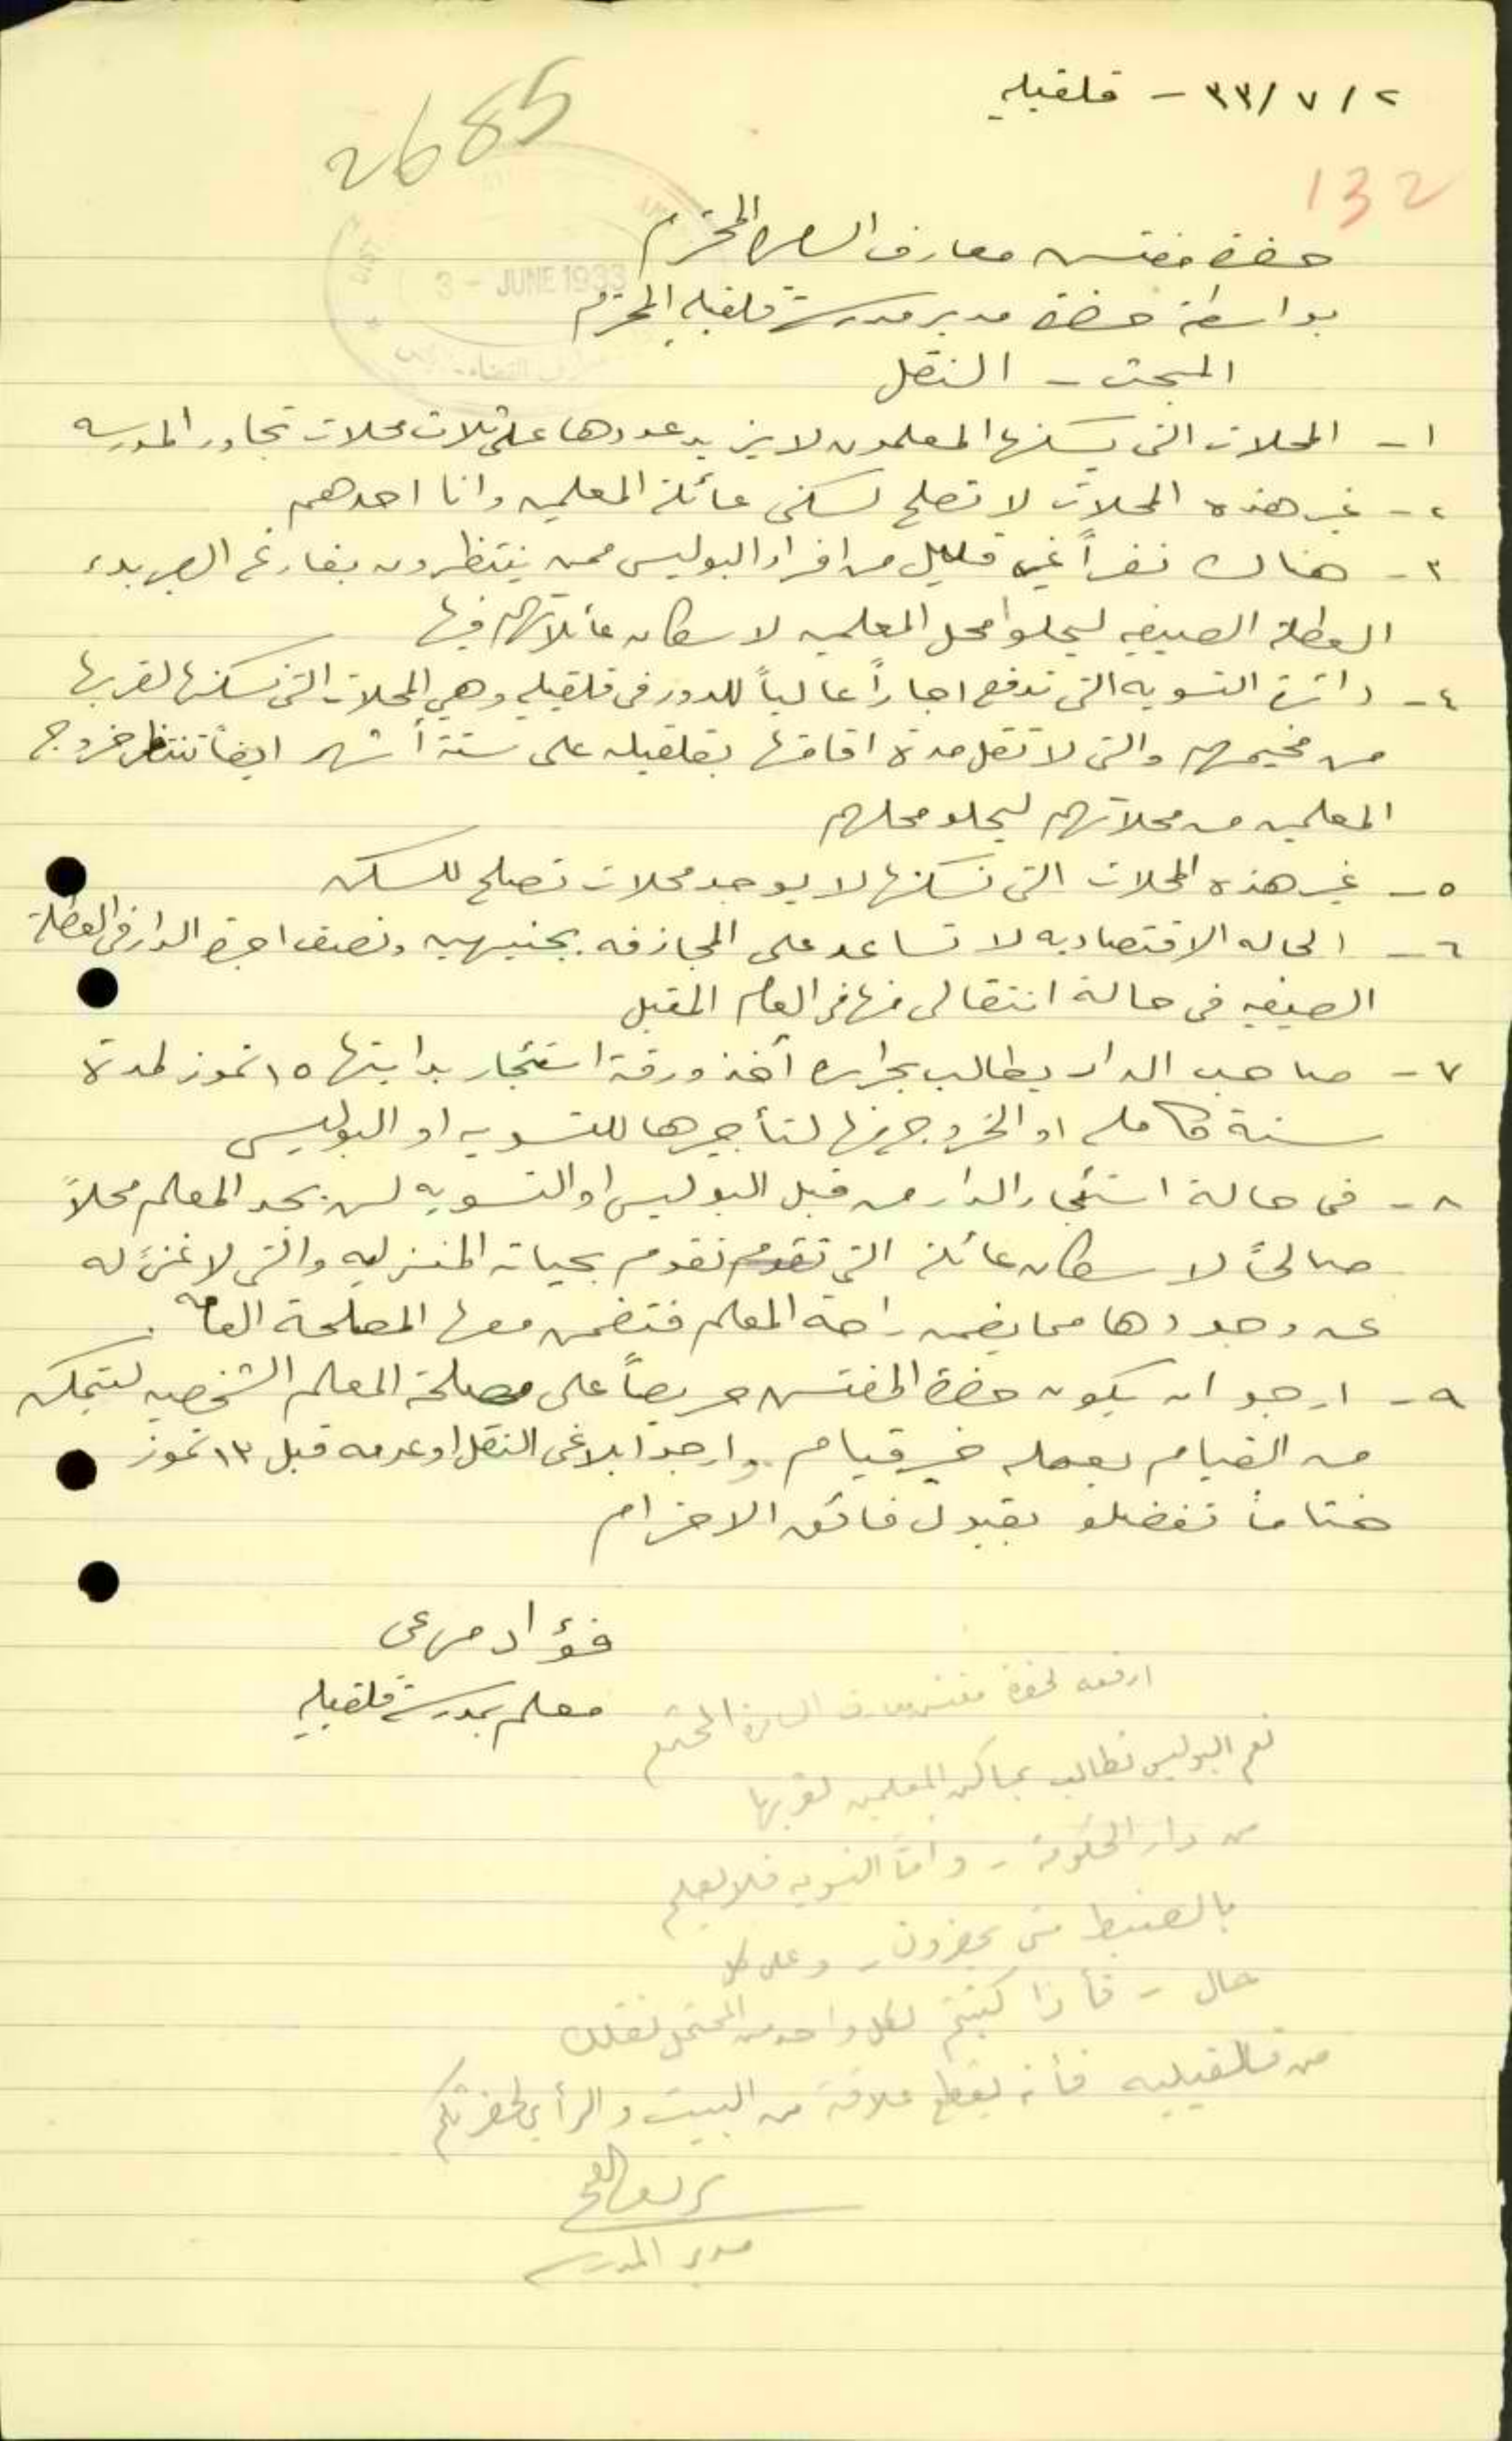 ٢ / ٧ /٣٣ - قلقيليه
2685
132
حضرة مفتش معارف السامره المحترم
3 - JUNE 1933
بواسطة حضرة مدير مدرسة قلقيليه المحترم
المبحث - النقل
١- المحلات التي يسكنها المعلمون لا يزيد عددها على ثلاث محلات تجاور المدرسه
٢- غير هذه المحلات لا تصلح لسكنى عائلة المعلمين وانا احدهم
٣- هناك نفراً غير قليل من افراد البوليس ممن ينتظرون بفارغ الصبر بدء
العطلة الصيفيه ليحلوا محل المعلمين لاسكان عائلاتهم فيها
٤- دائرة التسويه التي تدفع اجاراً عالياً للدور في قلقيليه وهي المحلات التي نسكنها لقربها
من مخيمهم والتي لا تقل مدة اقامتها بقلقيليه على ستة أشهر ايضاً تنتظر خروج
المعلمين من محلاتهم ليحلو محلهم
٥- غير هذه المحلات التي نسكنها لا يوجد محلات تصلح للسكن
٦- الحاله الاقتصاديه لا تساعد على المجازفه بجنيهين ونصف اجرة الدار في العطلة
الصيفيه في حالة انتقالي منها في العام المقبل
٧- صاحب الدار يطالب أخذ ورقة استئجار بدايتها ١٥ تموز لمدة
سنة كامله او الخروج منها لتأجيرها للتسويه او البوليس
٨- في حالة استئجار الدار من قبل البوليس او التسويه لن يجد المعلم محلاً
صالحاً لاسكان عائلته التي تقوم تقوم بحياته المنزليه والتي لا غنىً له
عن وجودها مما يضمن راحة المعلم فتضمن معها المصلحة العامه.
٩- ارجو ان يكون حضرة المفتش حريصاً على مصلحة المعلم الشخصيه ليتمكن
من القيام بعمله خير قيام وارجو ابلاغي النقل او عدمه قبل ١٣ تموز
ختاماً تفضلو بقبول فائق الاحترام
فؤاد مرعي
معلم بمدرسة قلقيليه
ارفعه لحضرة مفتش معارف السامرة المحترم
نعم البوليس تطالب بمساكن المعلمين لقربها
من دار الحكومة - وأمّا التسويه فلا يعلم
بالضبط متى يحضرون - وعلى كل
حال - فأذا كتبتم لكل واحد من المحتمل نقلك
من قلقيليه فأنه يقطع علاقته من البيت والرأي لحضرتكم
مدير المدرسه